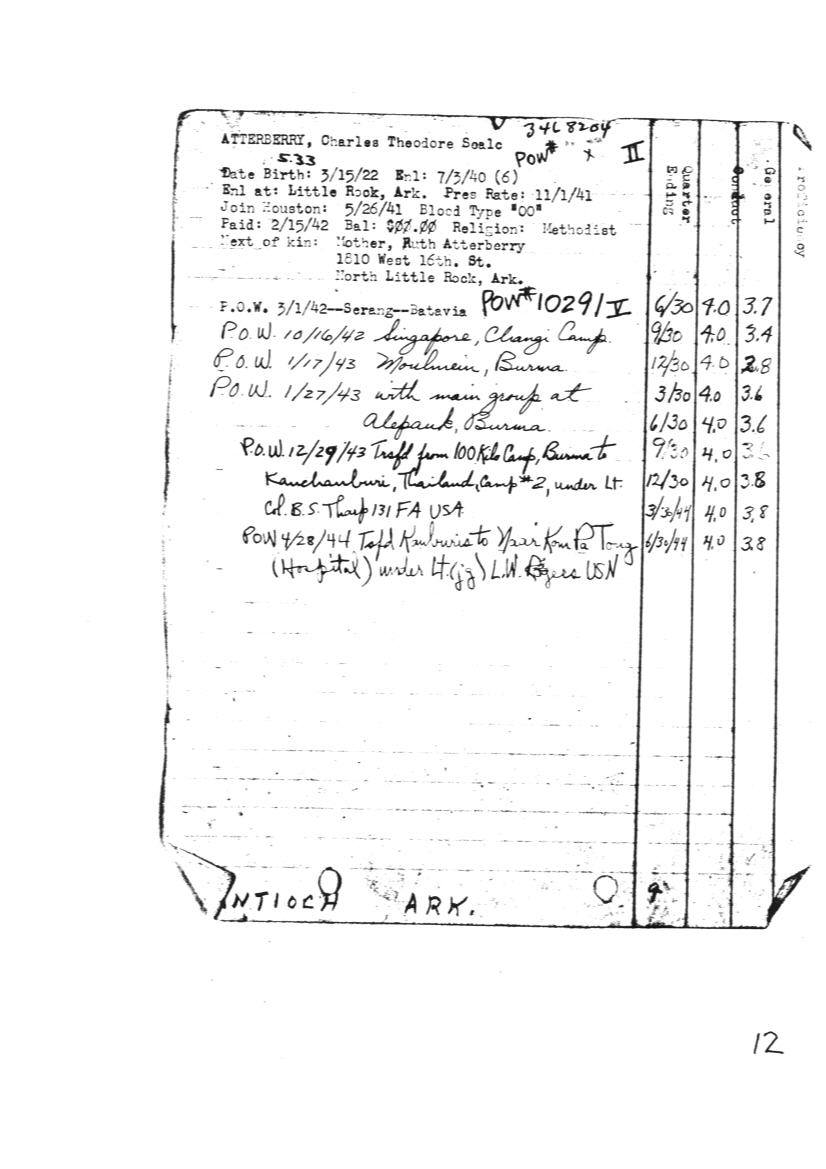 346 8204
ATTERBERRY, Charles Theodore Sealc
5.33 POW# " " x II
Date Birth: 3/15/22 Enl: 7/3/40 (6)
Enl at: Little Rock, Ark. Pres Rate: 11/1/41
Join Houston: 5/26/41 Blood Type "OO"
Paid: 2/15/42 Bal: $00.00 Religion: Methodist
Next of kin: Mother, Ruth Atterberry
1810 West 16th. St.
North Little Rock, Ark.
Quarter Ending
Conduct
General
P.O.W. 3/1/42--Serang--Batavia POW# 10291 V 6/30 4.0 3.7
P.O.W. 10/16/42 Singapore, Changi Camp. 9/30 4.0 3.4
P.O.W. 1/17/43 Moulmein, Burma 12/30 4.0 2.8
P.O.W. 1/27/43 with main group at 3/30 4.0 3.6
Alepauk, Burma. 6/30 4.0 3.6
P.O.W. 12/29/43 Trsfd from 100 Kilo Camp, Burma to 9/30 4.0
Kanchanburi, Thailand, Camp #2, under Lt. 12/30 4.0 3.8
Col. B.S. Tharp 131 FA USA 3/30/44 4.0 3.8
POW 4/28/44 Tsfd Kanburis to Naar Kom Pa Tong 6/30/44 4.0 3.8
(Hospital) under Lt. (jg) L.W. USN
ANTIOCH ARK.
12